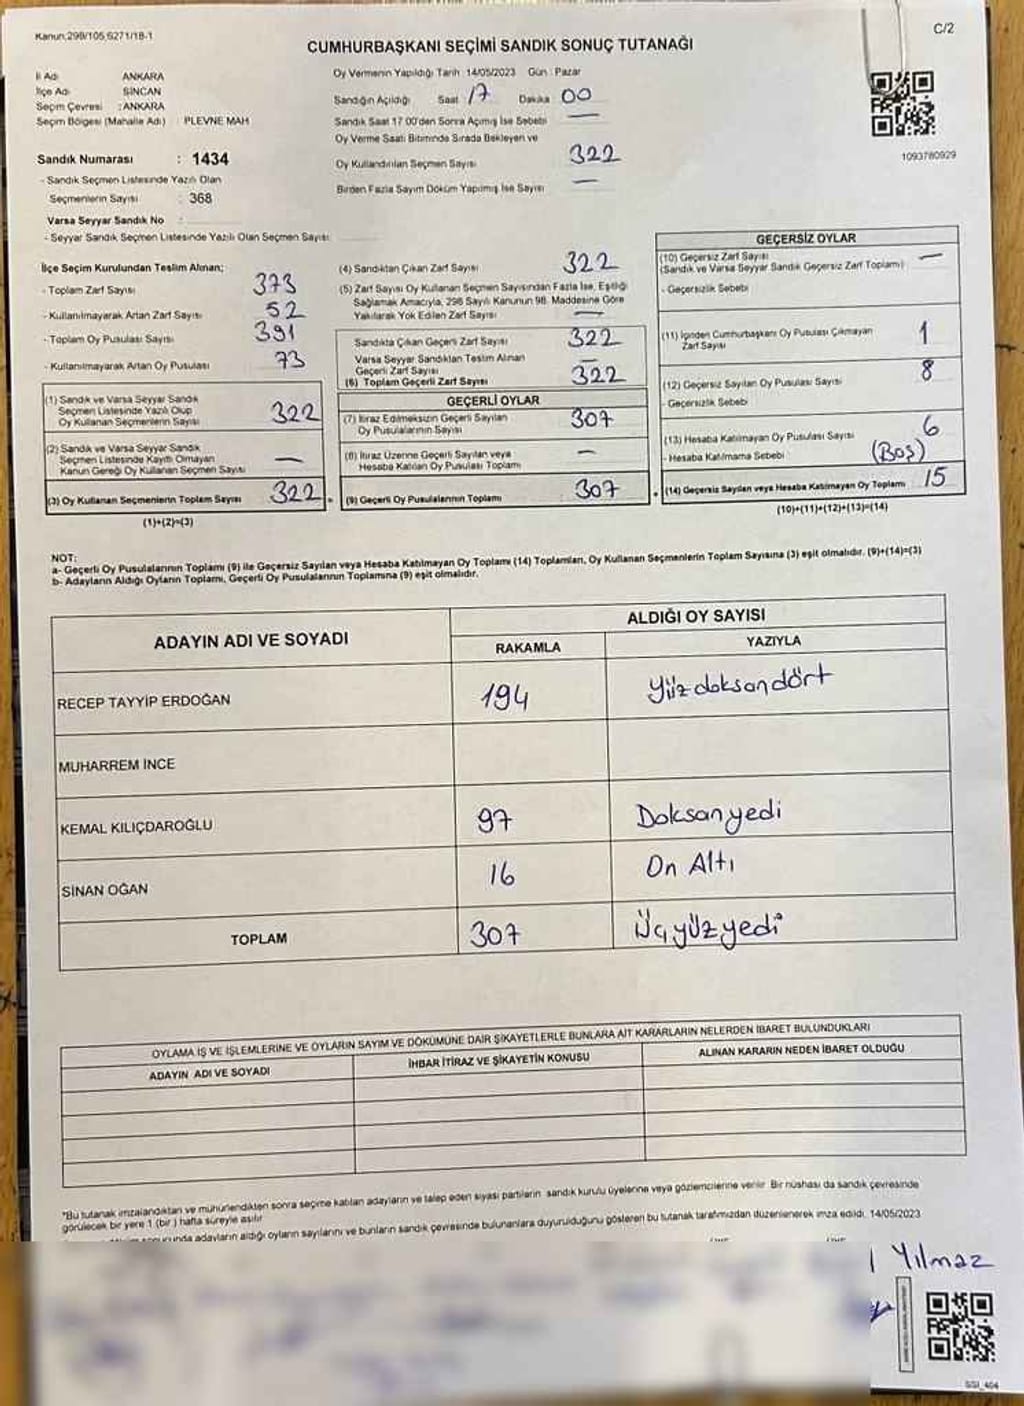 Kanun,298/105,6271/18-1
C/2
CUMHURBAŞKANI SEÇİMİ SANDIK SONUÇ TUTANAĞI
İl Adı ANKARA
İlçe Adı SİNCAN
Seçim Çevresi : ANKARA
Seçim Bölgesi (Mahalle Adı) : PLEVNE MAH
Sandık Numarası : 1434
- Sandık Seçmen Listesinde Yazılı Olan
Seçmenlerin Sayısı : 368
Varsa Seyyar Sandık No :
- Seyyar Sandık Seçmen Listesinde Yazılı Olan Seçmen Sayısı
Oy Vermenin Yapıldığı Tarih : 14/05/2023 Gün : Pazar
Sandığın Açıldığı Saat 17 Dakika 00
Sandık Saat 17 00'den Sonra Açmış İse Sebebi —
Oy Verme Saati Bitiminde Sırada Bekleyen ve
Oy Kullandırılan Seçmen Sayısı 322
Birden Fazla Sayım Döküm Yapılmış İse Sayısı —
1093780929
İlçe Seçim Kurulundan Teslim Alınan;
- Toplam Zarf Sayısı 373
- Kullanılmayarak Artan Zarf Sayısı 52
- Toplam Oy Pusulası Sayısı 391
- Kullanılmayarak Artan Oy Pusulası 73
(1) Sandık ve Varsa Seyyar Sandık
Seçmen Listesinde Yazılı Olup
Oy Kullanan Seçmenlerin Sayısı 322
(2) Sandık ve Varsa Seyyar Sandık
Seçmen Listesinde Kayıtlı Olmayan
Kanun Gereği Oy Kullanan Seçmen Sayısı —
(3) Oy Kullanan Seçmenlerin Toplam Sayısı 322
(1)+(2)=(3)
(4) Sandıktan Çıkan Zarf Sayısı 322
(5) Zarf Sayısı Oy Kullanan Seçmen Sayısından Fazla İse, Eşitliği
Sağlamak Amacıyla, 298 Sayılı Kanunun 98. Maddesine Göre
Yakılarak Yok Edilen Zarf Sayısı —
Sandıkta Çıkan Geçerli Zarf Sayısı 322
Varsa Seyyar Sandıktan Teslim Alınan
Geçerli Zarf Sayısı —
(6) Toplam Geçerli Zarf Sayısı 322
GEÇERLİ OYLAR
(7) İtiraz Edilmeksizin Geçerli Sayılan
Oy Pusulalarının Sayısı 307
(8) İtiraz Üzerine Geçerli Sayılan veya
Hesaba Katılan Oy Pusulası Toplamı —
(9) Geçerli Oy Pusulalarının Toplamı : 307
GEÇERSİZ OYLAR
(10) Geçersiz Zarf Sayısı —
(Sandık ve Varsa Seyyar Sandık Geçersiz Zarf Toplamı)
- Geçersizlik Sebebi
(11) İçinden Cumhurbaşkanı Oy Pusulası Çıkmayan
Zarf Sayısı 1
(12) Geçersiz Sayılan Oy Pusulası Sayısı 8
- Geçersizlik Sebebi
(13) Hesaba Katılmayan Oy Pusulası Sayısı 6
- Hesaba Katılmama Sebebi (Boş)
(14) Geçersiz Sayılan veya Hesaba Katılmayan Oy Toplamı 15
(10)+(11)+(12)+(13)=(14)
NOT:
a- Geçerli Oy Pusulalarının Toplamı (9) ile Geçersiz Sayılan veya Hesaba Katılmayan Oy Toplamı (14) Toplamları, Oy Kullanan Seçmenlerin Toplam Sayısına (3) eşit olmalıdır. (9)+(14)=(3)
b- Adayların Aldığı Oyların Toplamı, Geçerli Oy Pusulalarının Toplamına (9) eşit olmalıdır.
ADAYIN ADI VE SOYADI
ALDIĞI OY SAYISI
RAKAMLA YAZIYLA
RECEP TAYYİP ERDOĞAN 194 Yüzdoksandört
MUHARREM İNCE
KEMAL KILIÇDAROĞLU 97 Doksanyedi
SİNAN OĞAN 16 On Altı
TOPLAM 307 Üçyüzyedi
OYLAMA İŞ VE İŞLEMLERİNE VE OYLARIN SAYIM VE DÖKÜMÜNE DAİR ŞİKAYETLERLE BUNLARA AİT KARARLARIN NELERDEN İBARET BULUNDUKLARI
ADAYIN ADI VE SOYADI İHBAR İTİRAZ VE ŞİKAYETİN KONUSU ALINAN KARARIN NEDEN İBARET OLDUĞU
*Bu tutanak imzalandıktan ve mühürlendikten sonra seçime katılan adayların ve talep eden siyasi partilerin sandık kurulu üyelerine veya gözlemcilerine verilir. Bir nüshası da sandık çevresinde
görülecek bir yere 1 (bir) hafta süreyle asılır
adayların aldığı oyların sayılarını ve bunların sandık çevresinde bulunanlara duyurulduğunu gösteren bu tutanak tarafımızdan düzenlenerek imza edildi. 14/05/2023
Yılmaz
SSI_404